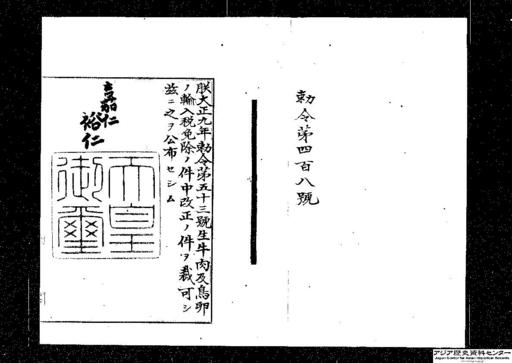 勅令第四百八號
朕大正九年勅令第五十三號生牛肉及鳥卵
ノ輸入税免除ノ件中改正ノ件ヲ裁可シ
茲ニ之ヲ公布セシム
嘉仁
裕仁
天皇
御璽
アジア歴史資料センター
Japan Center for Asian Historical Records